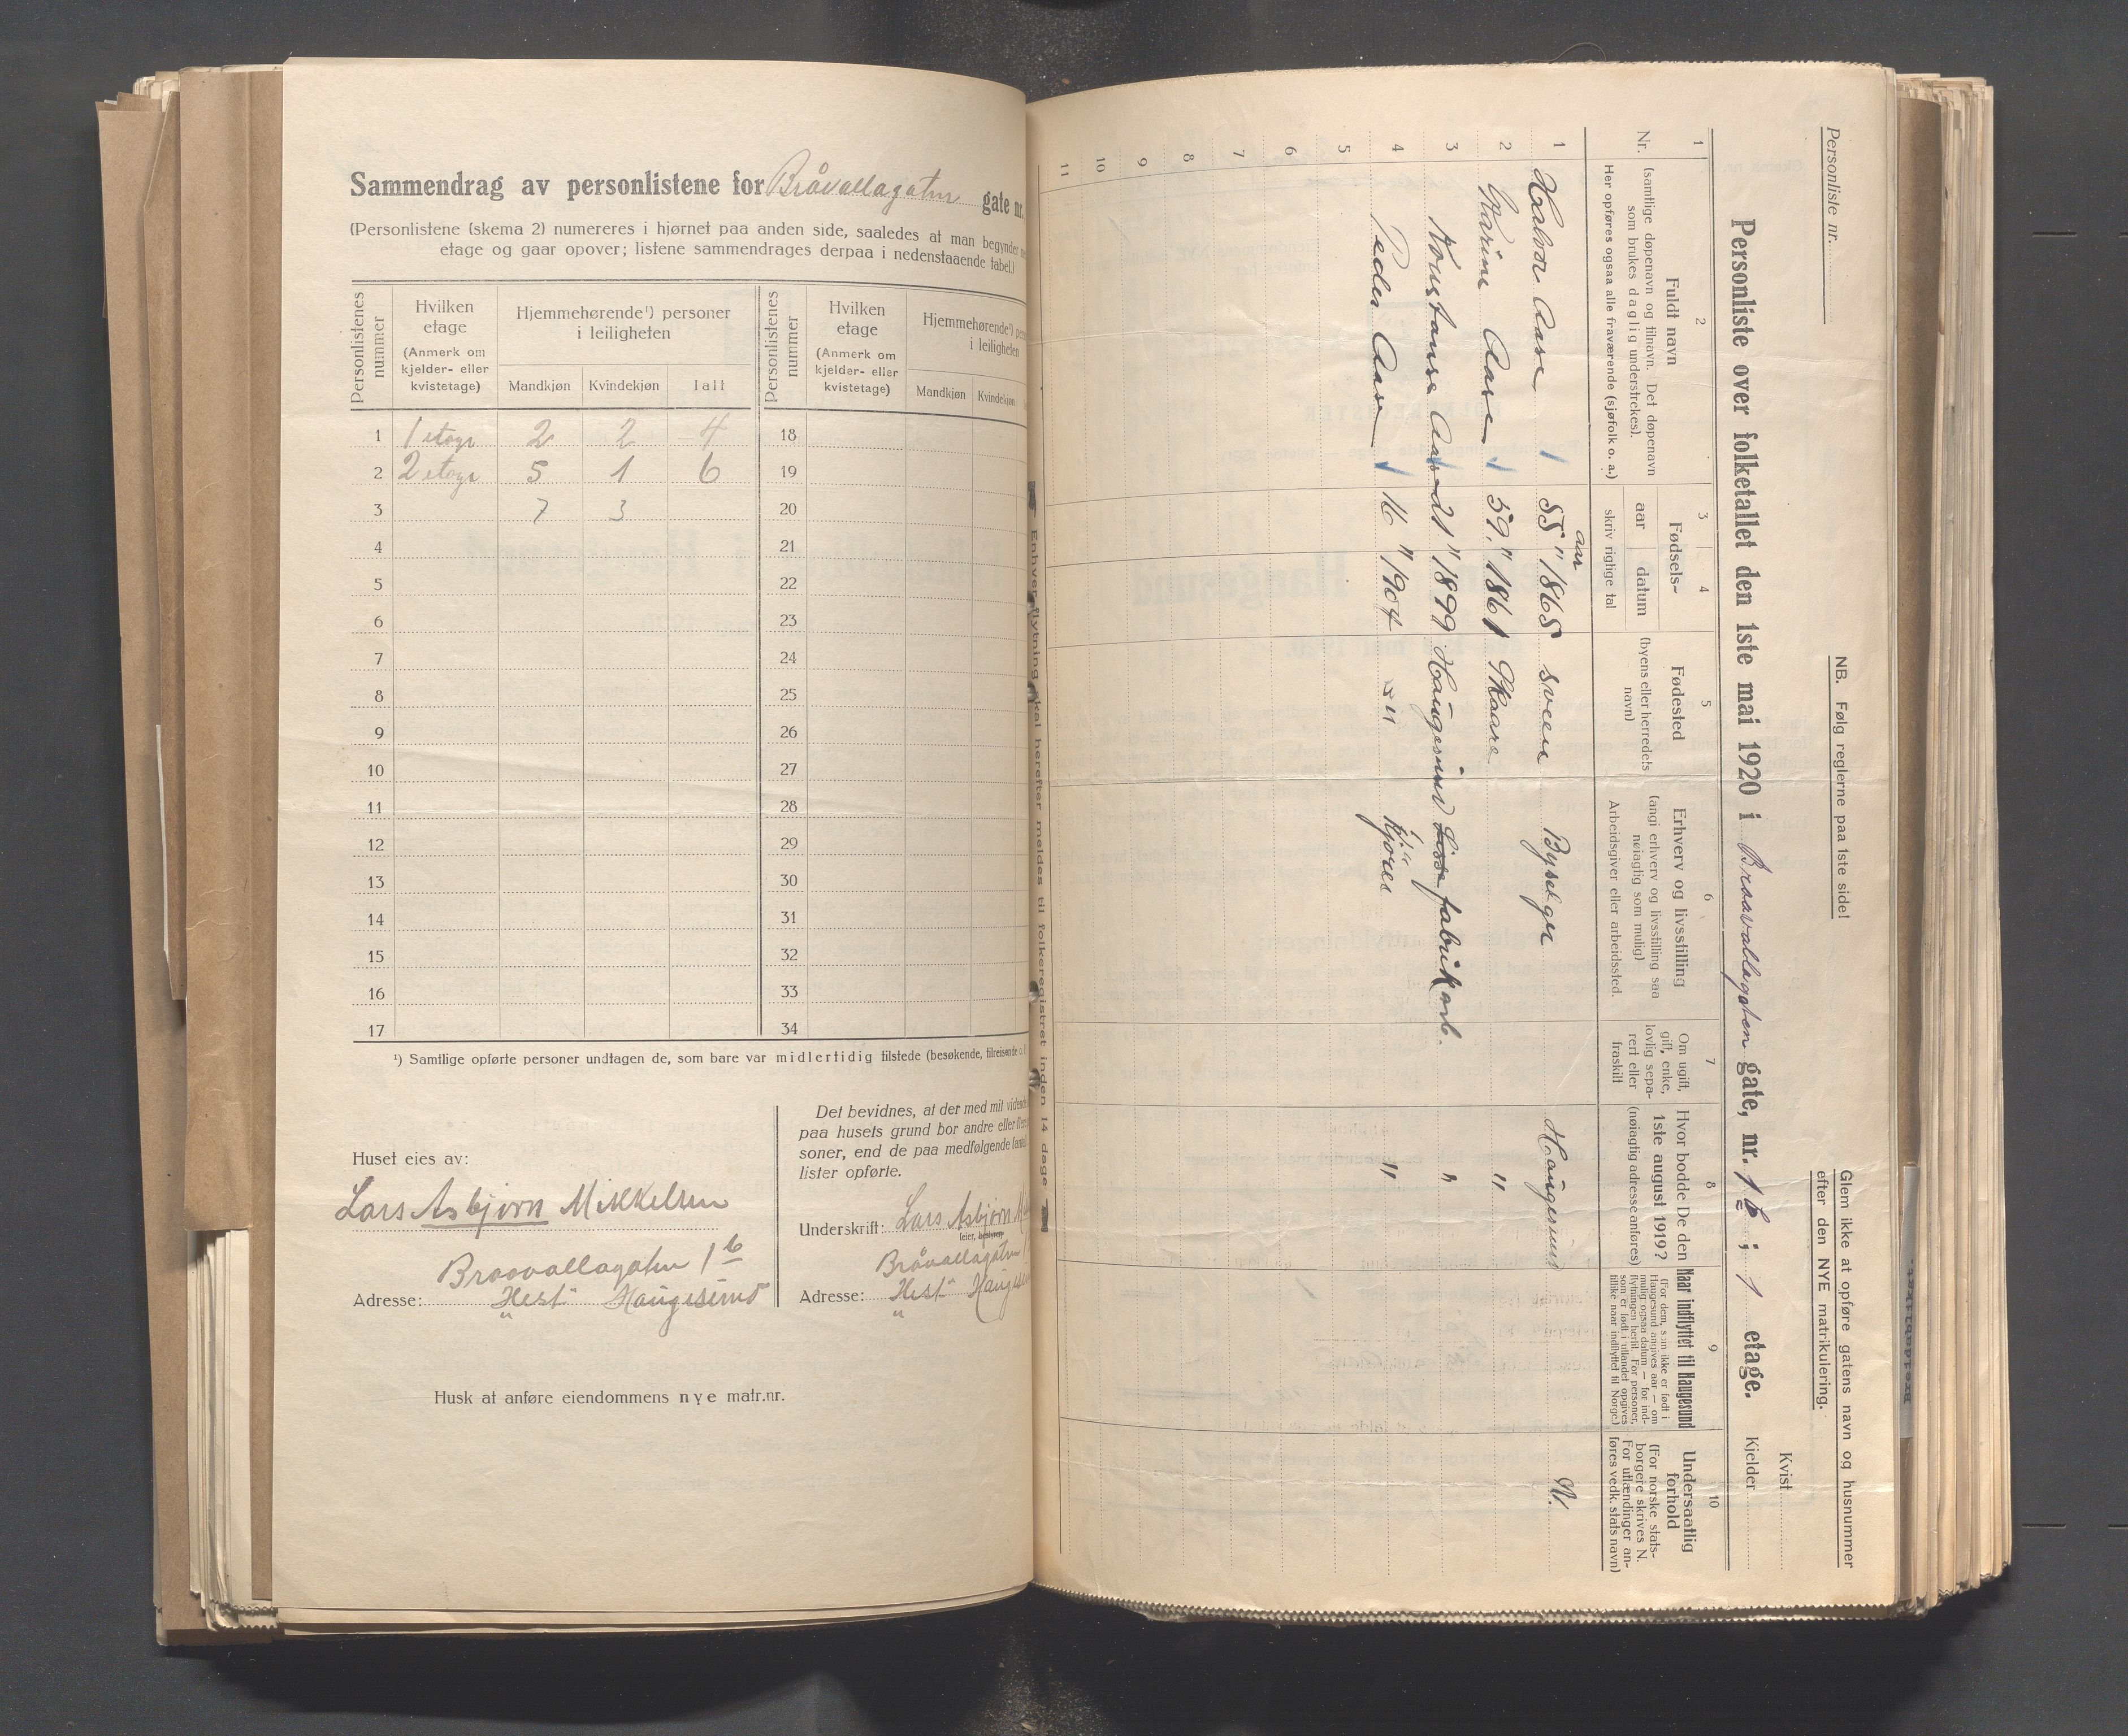 Sammendrag av personlistene for Bråvallagaten gate nr.
(Personlistene (skema 2) numereres i hjørnet paa anden side, saaledes at man begynder
etage og gaar opover; listene sammendrages derpaa i nedenstaaende tabel.)
Personlistenes nummer
Hvilken etage (Anmerk om kjelder- eller kvistetage)
Hjemmehørende¹) personer i leiligheten
Mandkjøn Kvindekjøn Ialt
Personlistenes nummer
Hvilken etage (Anmerk om kjelder- eller kvistetage)
Hjemmehørende¹) i leiligheten
Mandkjøn Kvindekjøn
1 1 etage 2 2 4 18
2 2 etage 5 1 6 19
3 7 3 20
4 21
5 22
6 23
7 24
8 25
9 26
10 27
11 28
12 29
13 30
14 31
15 32
16 33
17 34
¹) Samtlige opførte personer undtagen de, som bare var midlertidig tilstede (besøkende, tilreisende o.
Huset eies av:
Lars Asbjørn Mikkelsen
Braavallagaten 1b
Adresse: Hest. Haugesund
Det bevidnes, at der med mit vidende
paa husets grund bor andre eller flere
soner, end de paa medfølgende (antal)
lister opførte.
Underskrift: Lars Asbjørn
(eier, bestyrer)
Bråvallagaten
Adresse: Hest.
Husk at anføre eiendommens nye matr.nr.
Enhver flytning skal herefter meldes til folkeregistret inden 14 dage
Personliste nr.
NB. Følg reglerne paa 1ste side!
Glem ikke at opføre gatens navn og husnummer
efter den NYE matrikulering.
Kvist
Personliste over folketallet den 1ste mai 1920 i Braavallagaten gate, nr. 1b; 1 etage.
Kjelder
1 2 3 4 5 6 7 8 9 10
Nr.
Fuldt navn
(samtlige døpenavn og tilnavn. Det døpenavn
som brukes daglig understrekes).
Her opføres ogsaa alle fraværende (sjøfolk o. a.)
Fødsels-
aar datum
skriv rigtige tal
Fødested
(byens eller herredets
navn)
Erhverv og livsstilling
(angi erhverv og livsstilling saa
nøiagtig som mulig)
Arbeidsgiver eller arbeidssted.
Om ugift,
gift, enke,
lovlig sepa-
rert eller
fraskilt
Hvor bodde De den
1ste august 1919?
(nøiagtig adresse anføres)
Naar indflyttet til Haugesund
(For dem, som ikke er født i
Haugesund angives aar — om
mulig ogsaa datum — for ind-
flytningen hertil. For personer,
som er født i utlandet opgives
tillike naar indflyttet til Norge)
Undersaatlig
forhold
(For norske stats-
borgere skrives N.
For utlændinger an-
føres vedk. stats navn)
aar
1 Halvor Aase 55 " 1865 Sveen Byselger Haugesund N.
2 Karine Aase 59 " 1861 Skaare "
3 Konstanse Aase 21 " 1899 Haugesund fabrikarb. "
4 Peder Aase 16 " 1904 " Kjøres "
5
6
7
8
9
10
11